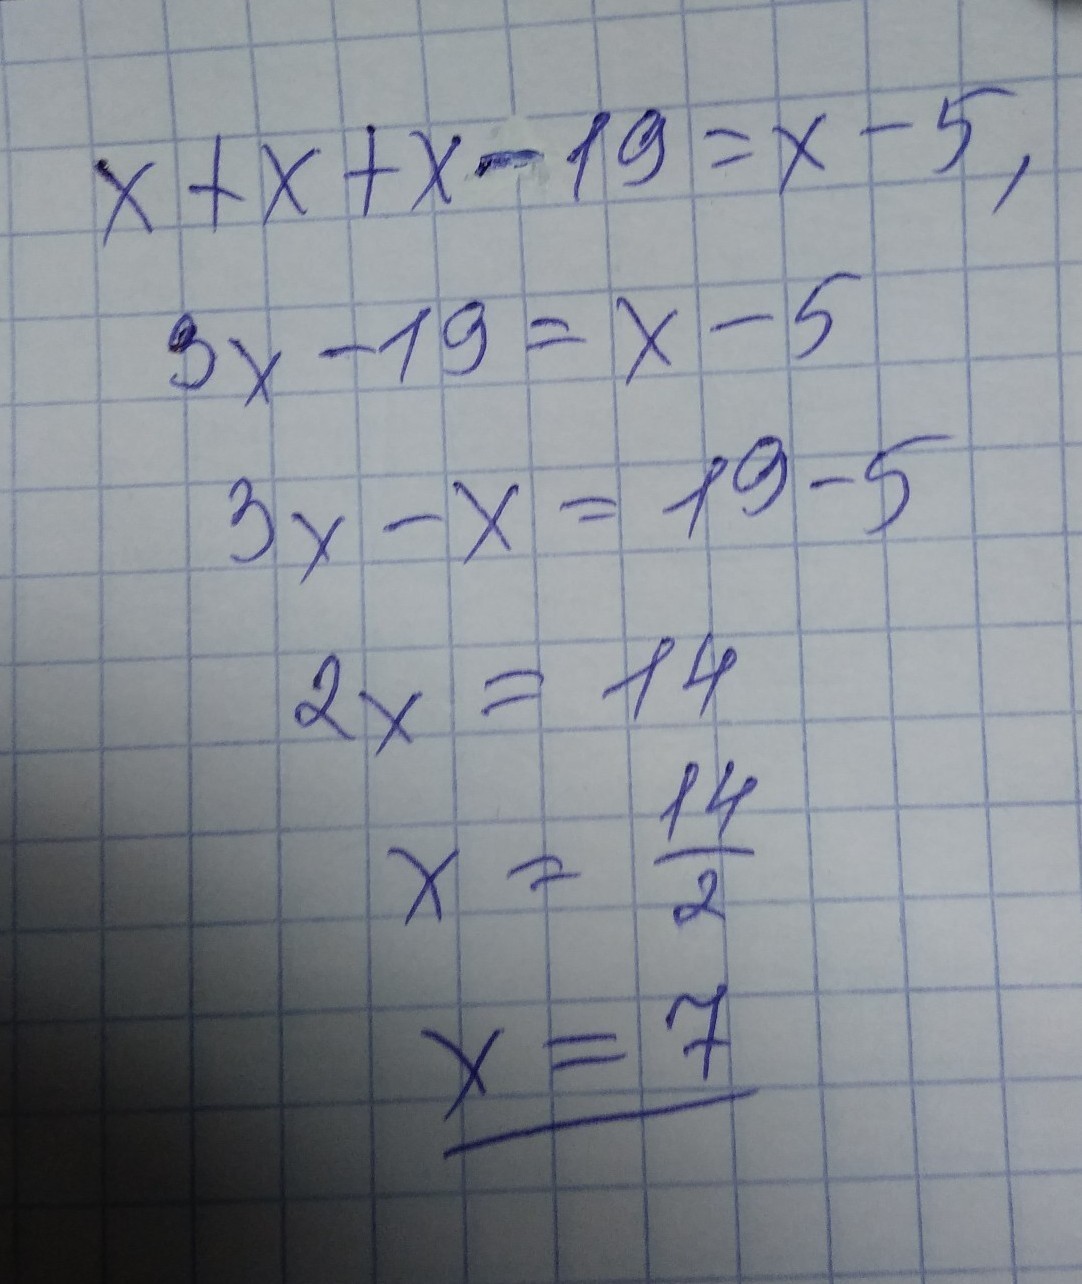 x+x+x-19=x-5,
3x-19=x-5
3x-x=19-5
2x=14
x=14/2
x=7